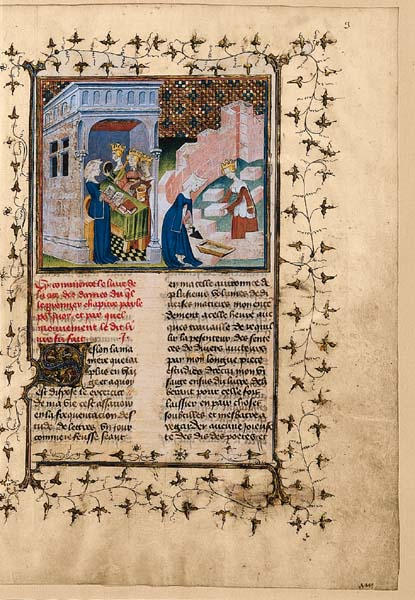 3
Cy commence le livre de
la cite des dames du quel
le premier chapitre parle
pour quoy et par quel
mouvement le dit li
vre fu fait I.
Selon la ma
niere que iay
en usai
ge et a quoy
est dispose le exercice
de ma vie cest assavoir
en la frequentation des
tude de lettres Un iour
comme ie feusse seant
en ma celle avironnee de
plusieurs volumes de di
verses matieres mon enten
dement a celle heure auc
ques travaillie de recueil
lir la pesenteur des senten
ces de divers aucteurs
par moy longue piece
estudies drecay mon vi
sage ensus du livre deli
berant pour celle foiz
laissier en paix choses
soubtilles et mesbatre a
regarder aucune ioyeuse
te des dis des poetes et